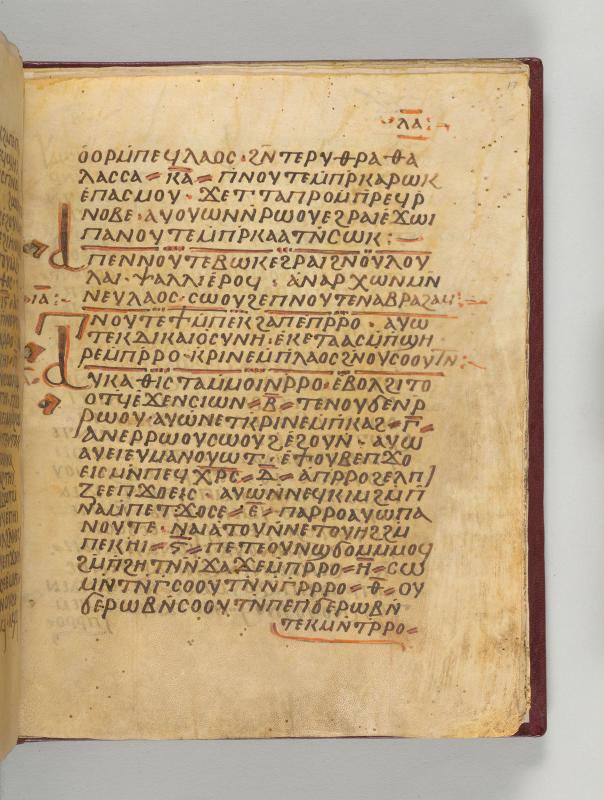 ⲗ̅ⲁ̅
ϭⲟⲣⲙⲡⲉϥⲗⲁⲟⲥ·ϩⲛⲧⲉⲣⲩⲑⲣⲁⲑⲁ
ⲗⲁⲥⲥⲁ = ⲕ̅ⲁ̅ = ⲡⲛⲟⲩⲧⲉⲙⲡⲣⲕⲁⲣⲱⲕ
ⲉⲡⲁⲥⲙⲟⲩ · ϫⲉⲧⲧⲁⲡⲣⲟⲙⲡⲣⲉϥⲣ
ⲛⲟⲃⲉ·ⲁⲩⲟⲩⲱⲛⲛⲣⲱⲟⲩⲉϩⲣⲁⲓⲉϫⲱⲓ
ⲡⲁⲛⲟⲩⲧⲉⲙⲡⲣⲕⲁⲁⲧⲛⲥⲱⲕ:
ⲁⲡⲉⲛⲛⲟⲩⲧⲉⲃⲱⲕⲉϩⲣⲁⲓϩⲛⲟⲩⲗⲟⲩ
ⲗⲁⲓ·ⲯⲁⲗⲗⲓⲉⲣⲟϥ·ⲁⲛⲁⲣⲭⲱⲛⲙⲛ
ⲓ̅ⲁ̅: ⲛⲉⲩⲗⲁⲟⲥ·ⲥⲱⲟⲩϩⲉⲡⲛⲟⲩⲧⲉⲛⲁⲃⲣⲁϩⲁⲙ:
ⲡⲛⲟⲩⲧⲉϯⲙⲡⲉⲕϩⲁⲡⲉⲡⲣⲣⲟ·ⲁⲩⲱ
ⲧⲉⲕⲇⲓⲕⲁⲓⲟⲥⲩⲛⲏ·ⲉⲕⲉⲧⲁⲁⲥⲙⲡϣⲏ
ⲣⲉⲙⲡⲣⲣⲟ·ⲕⲣⲓⲛⲉⲙⲡⲗⲁⲟⲥϩⲛⲟⲩⲥⲟⲟⲩⲧⲛ:
ⲁⲩⲕⲁⲑⲓⲥⲧⲁⲙⲙⲟⲓⲛⲣⲣⲟ·ⲉⲃⲟⲗϩⲓⲧⲟ
ⲟⲧϥⲉϫⲉⲛⲥⲓⲱⲛ=ⲃ̅=ⲧⲉⲛⲟⲩϭⲉⲛⲣ
ⲣⲱⲟⲩ·ⲁⲩⲱⲛⲉⲧⲕⲣⲓⲛⲉⲙⲡⲕⲁϩ=ⲅ̅=
ⲁⲛⲉⲣⲣⲱⲟⲩⲥⲱⲟⲩϩⲉϩⲟⲩⲛ·ⲁⲩⲱ
ⲁⲩⲉⲓⲉⲩⲙⲁⲛⲟⲩⲱⲧ·ⲉϯⲟⲩⲃⲉⲡϫⲟ
ⲉⲓⲥⲙⲛⲡⲉϥⲭ̅ⲣ̅ⲥ̅=ⲇ̅=ⲁⲡⲣⲣⲟϩⲉⲗⲡⲓ
ⲍⲉⲉⲡϫⲟⲉⲓⲥ·ⲁⲩⲱⲛⲛⲉϥⲕⲓⲙϩⲙⲡ
ⲛⲁⲙⲡⲉⲧϫⲟⲥⲉ=ⲉ̅=ⲡⲁⲣⲣⲟⲁⲩⲱⲡⲁ
ⲛⲟⲩⲧⲉ·ⲛⲁⲓⲁⲧⲟⲩⲛⲛⲉⲧⲟⲩⲏϩϩⲙ
ⲡⲉⲕⲏⲓ=ⲋ̅=ⲡⲉⲧⲉⲟⲩⲛϣϭⲟⲙⲙⲙⲟϥ
ϩⲙⲡϩⲏⲧⲛⲛϫⲁϫⲉⲙⲡⲣⲣⲟ=ⲏ̅=ⲥⲱ
ⲙⲛⲧⲛⲅⲥⲟⲟⲩⲧⲛⲛⲅⲣⲣⲣⲟ=ⲑ̅=ⲟⲩ
ϭⲉⲣⲱⲃⲛⲥⲟⲟⲩⲧⲛⲡⲉⲡϭⲉⲣⲱⲃⲛ
ⲧⲉⲕⲙⲛⲧⲣⲣⲟ=